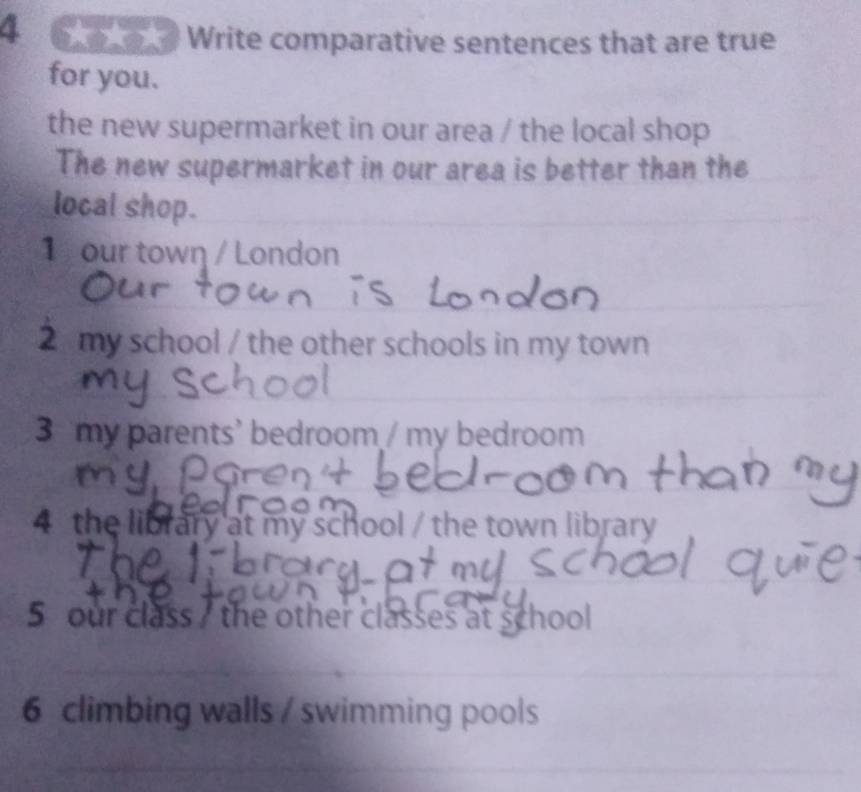 4 Write comparative sentences that are true
for you.
the new supermarket in our area / the local shop
The new supermarket in our area is better than the
local shop.
1 our town / London
Our town is London
2 my school / the other schools in my town
my school
3 my parents' bedroom / my bedroom
my paren't bedroom than my
bedroom
4 the library at my school / the town library
The library at my school quie
the town library
5 our class / the other classes at school
6 climbing walls / swimming pools